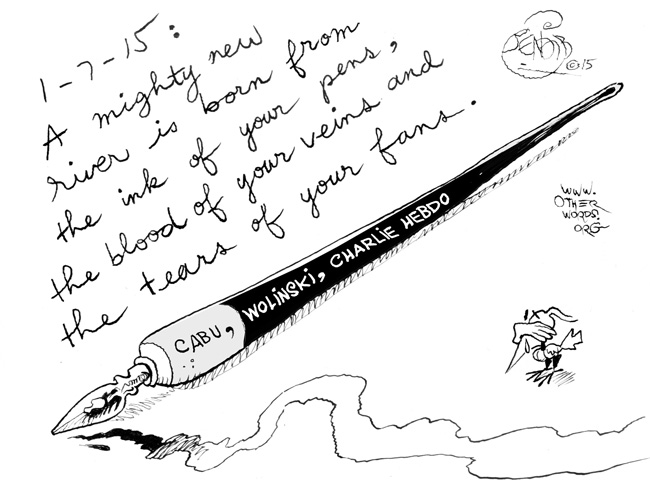 1-7-15:
A mighty new
river is born from
the ink of your pens,
the blood of your veins and
the tears of your fans.
©15
WWW.
OTHER
WORDS.
ORG
CABU, WOLINSKI, CHARLIE HEBDO